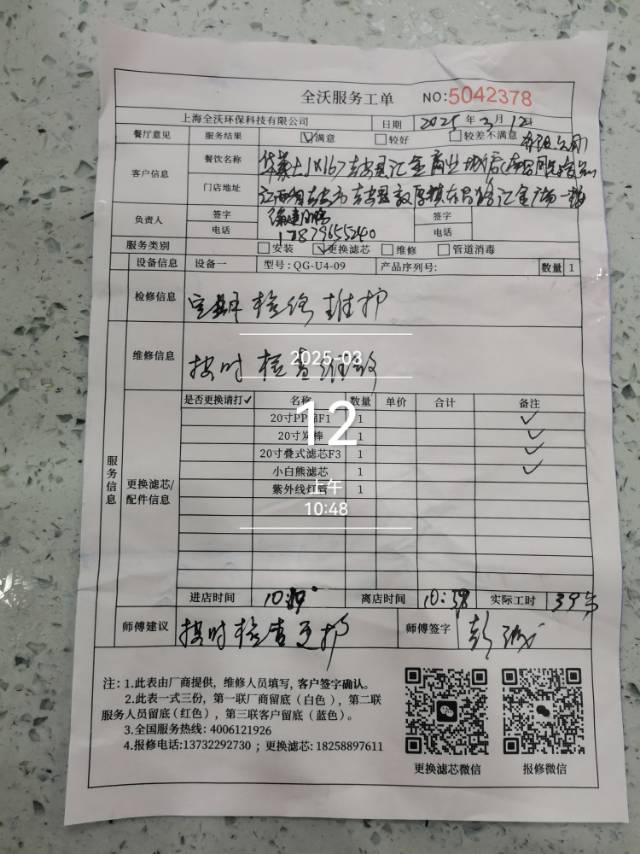 全沃服务工单 NO:5042378
上海全沃环保科技有限公司 日期 2025年3月12日
餐厅意见 服务结果 满意 较好 较差不满意
客户信息 餐饮名称 华莱士 吉安县汇金商业城店
门店地址 江西省吉安市吉安县敦厚镇 汇金广场一楼
负责人 签字 签字
电话 17879655240 电话
服务类别 安装 更换滤芯 维修 管道消毒
设备信息 设备一 型号:QG-U4-09 产品序列号: 数量 1
检修信息 定期检修维护
维修信息 按时检查维修
服务信息
更换滤芯/配件信息
是否更换请打✓ 名称 数量 单价 合计 备注
20寸PP棉F1 1 ✓
20寸炭棒 1 ✓
20寸叠式滤芯F3 1 ✓
小白熊滤芯 1 ✓
紫外线灯管 1
进店时间 离店时间 10:38 实际工时
师傅建议 按时检查更护 师傅签字 彭
注:1.此表由厂商提供,维修人员填写,客户签字确认。
2.此表一式三份,第一联厂商留底(白色),第二联
服务人员留底(红色),第三联客户留底(蓝色)。
3.全国服务热线: 4006121926
4.报修电话:13732292730;更换滤芯: 18258897611
更换滤芯微信 报修微信
2025-03
12
上午
10:48